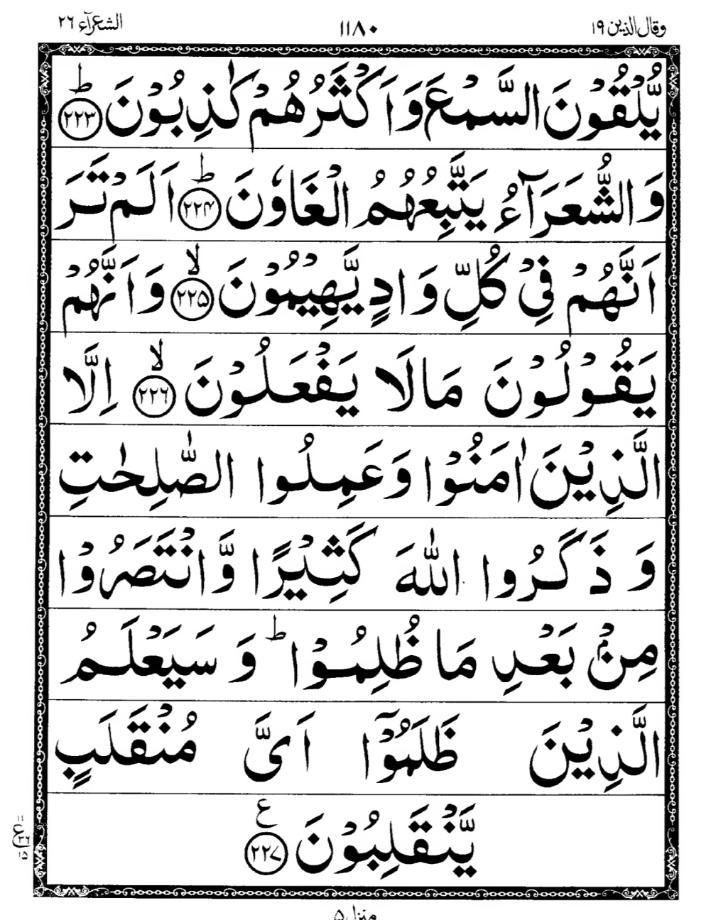 وقال الذین ۱۹ ۱۱۸۰ الشعرآء ۲۶
یُّلۡقُوۡنَ السَّمۡعَ وَاَکۡثَرُهُمۡ کٰذِبُوۡنَ ؕ‏﴿۲۲۳﴾
وَالشُّعَرَآءُ یَتَّبِعُهُمُ الۡغَاوٗنَ ؕ‏﴿۲۲۴﴾ اَلَمۡ تَرَ
اَنَّهُمۡ فِیۡ کُلِّ وَادٍ یَّهِیۡمُوۡنَ ۙ‏﴿۲۲۵﴾ وَاَنَّهُمۡ
یَقُوۡلُوۡنَ مَالَا یَفۡعَلُوۡنَ ۙ‏﴿۲۲۶﴾ اِلَّا
الَّذِیۡنَ اٰمَنُوۡا وَعَمِلُوا الصّٰلِحٰتِ
وَ ذَکَرُوا اللّٰهَ کَثِیۡرًا وَّانۡتَصَرُوۡا
مِنۡۢ بَعۡدِ مَا ظُلِمُوۡا ؕ وَ سَیَعۡلَمُ
الَّذِیۡنَ ظَلَمُوۡۤا اَیَّ مُنۡقَلَبٍ
یَّنۡقَلِبُوۡنَ ‏﴿۲۲۷﴾ ع
منزل ۵